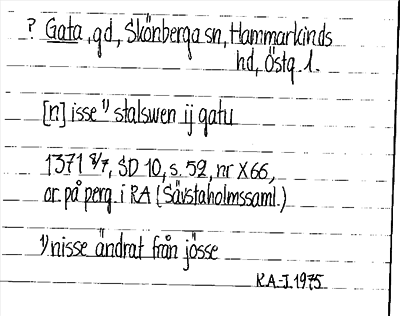 ? Gata, gd, Skönberga sn, Hammarkinds
hd, Östg. l.
[n]isse ¹⁾ stalswen ij gatu
1371 8/7, SD 10, s. 52, nr X66,
or. på perg. i RA (Sävstaholmssaml.)
¹⁾ nisse ändrat från jösse
R.A-J. 1975